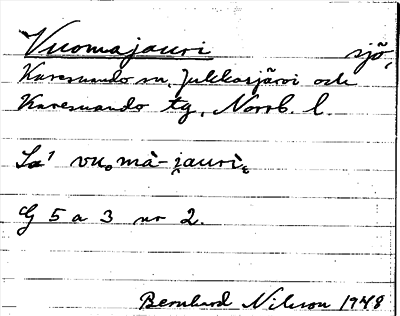 Vuomajauri sjö,
Karesuando sn, Jukkasjärvi och
Karesuando tg, Norrb. l.
La' vu̥omà-jauri̥
G 5 a 3 nr 2.
Bernhard Nilsson 1948